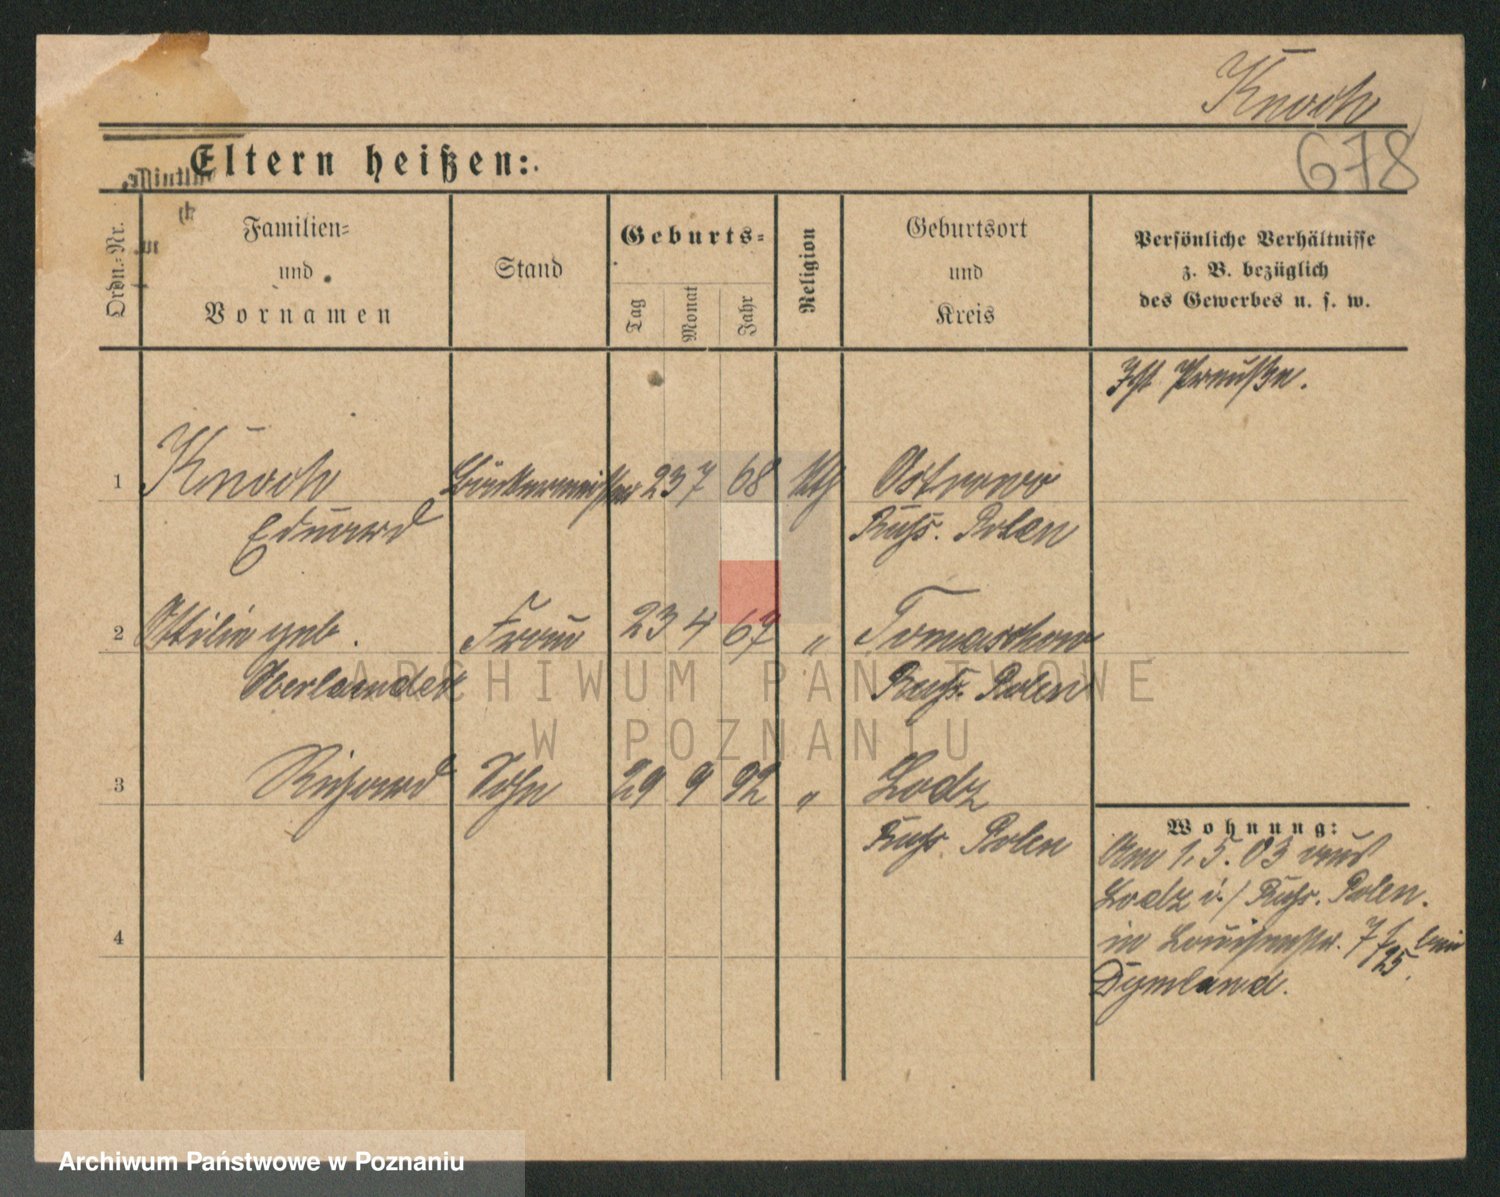 Knoch
678
Eltern heißen:
Ordn.-Nr.
Familien-
und
Vornamen
Stand
Geburts-
Tag
Monat
Jahr
Religion
Geburtsort
und
Kreis
Persönliche Verhältnisse
z. B. bezüglich
des Gewerbes u. s. w.
Ist Preuße.
1 Knoch 23 7 68 Ostrowo
Eduard Russ. Polen
2 Ottilie geb. Frau 23 4 67 " Tomaschow
Oberlaender Russ. Polen
3 Richard Sohn 29 9 92 " Lodz
Russ. Polen
4
Wohnung:
Am 1.5.03 aus
Lodz i./ Russ. Polen.
in Louisenstr. 7f bei
25.
Dymland.
ARCHIWUM PAŃSTWOWE
W POZNANIU
Archiwum Państwowe w Poznaniu